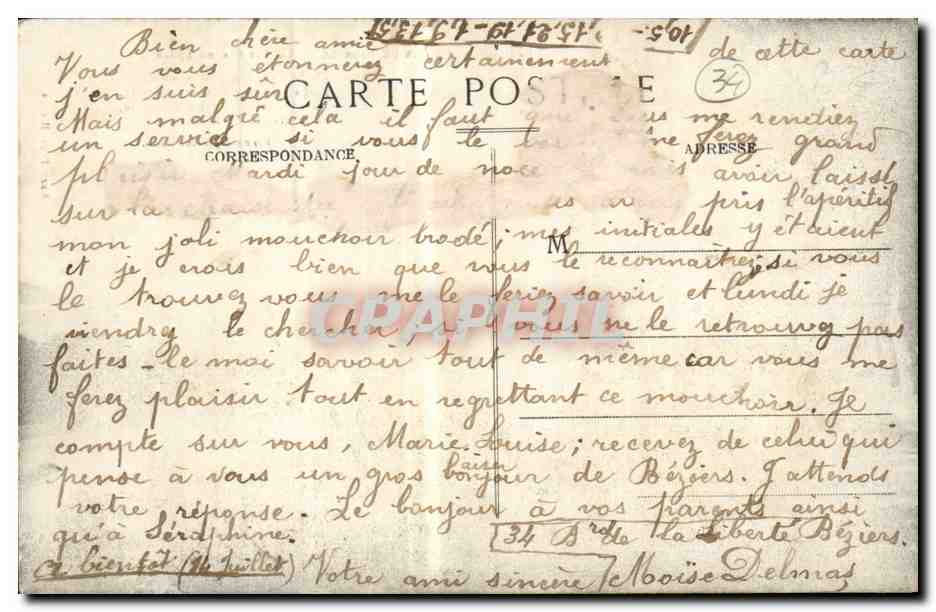 10,5-
15,21,19-1,9,13,5
Bien chère amie
Vous vous étonnerez certainement de cette carte
34
j'en suis sûr
CARTE POSTALE
Mais malgré cela il faut que vous me rendiez
un service si vous le me ferez grand
CORRESPONDANCE
ADRESSE
plaisir Mardi jour de noce avoir laissé
sur la pris l'apéritif
mon joli mouchoir brodé; mes initiales y étaient
M
et je crois bien que vous le reconnaîtrez, si vous
le trouvez vous me le feriez savoir et lundi je
viendrez le chercher, si vous ne le retrouvez pas
CPAPHIL
faites-le moi savoir tout de même car vous me
ferez plaisir tout en regrettant ce mouchoir. Je
compte sur vous, Marie-Louise; recevez de celui qui
pense à vous un gros bonjour aiser de Béziers. J'attends
votre réponse. Le bonjour à vos parents ainsi
qu'à Séraphine.
34 Brd de la Liberté Béziers.
à bientôt (14 Juillet) Votre ami sincère Moïse Delmas